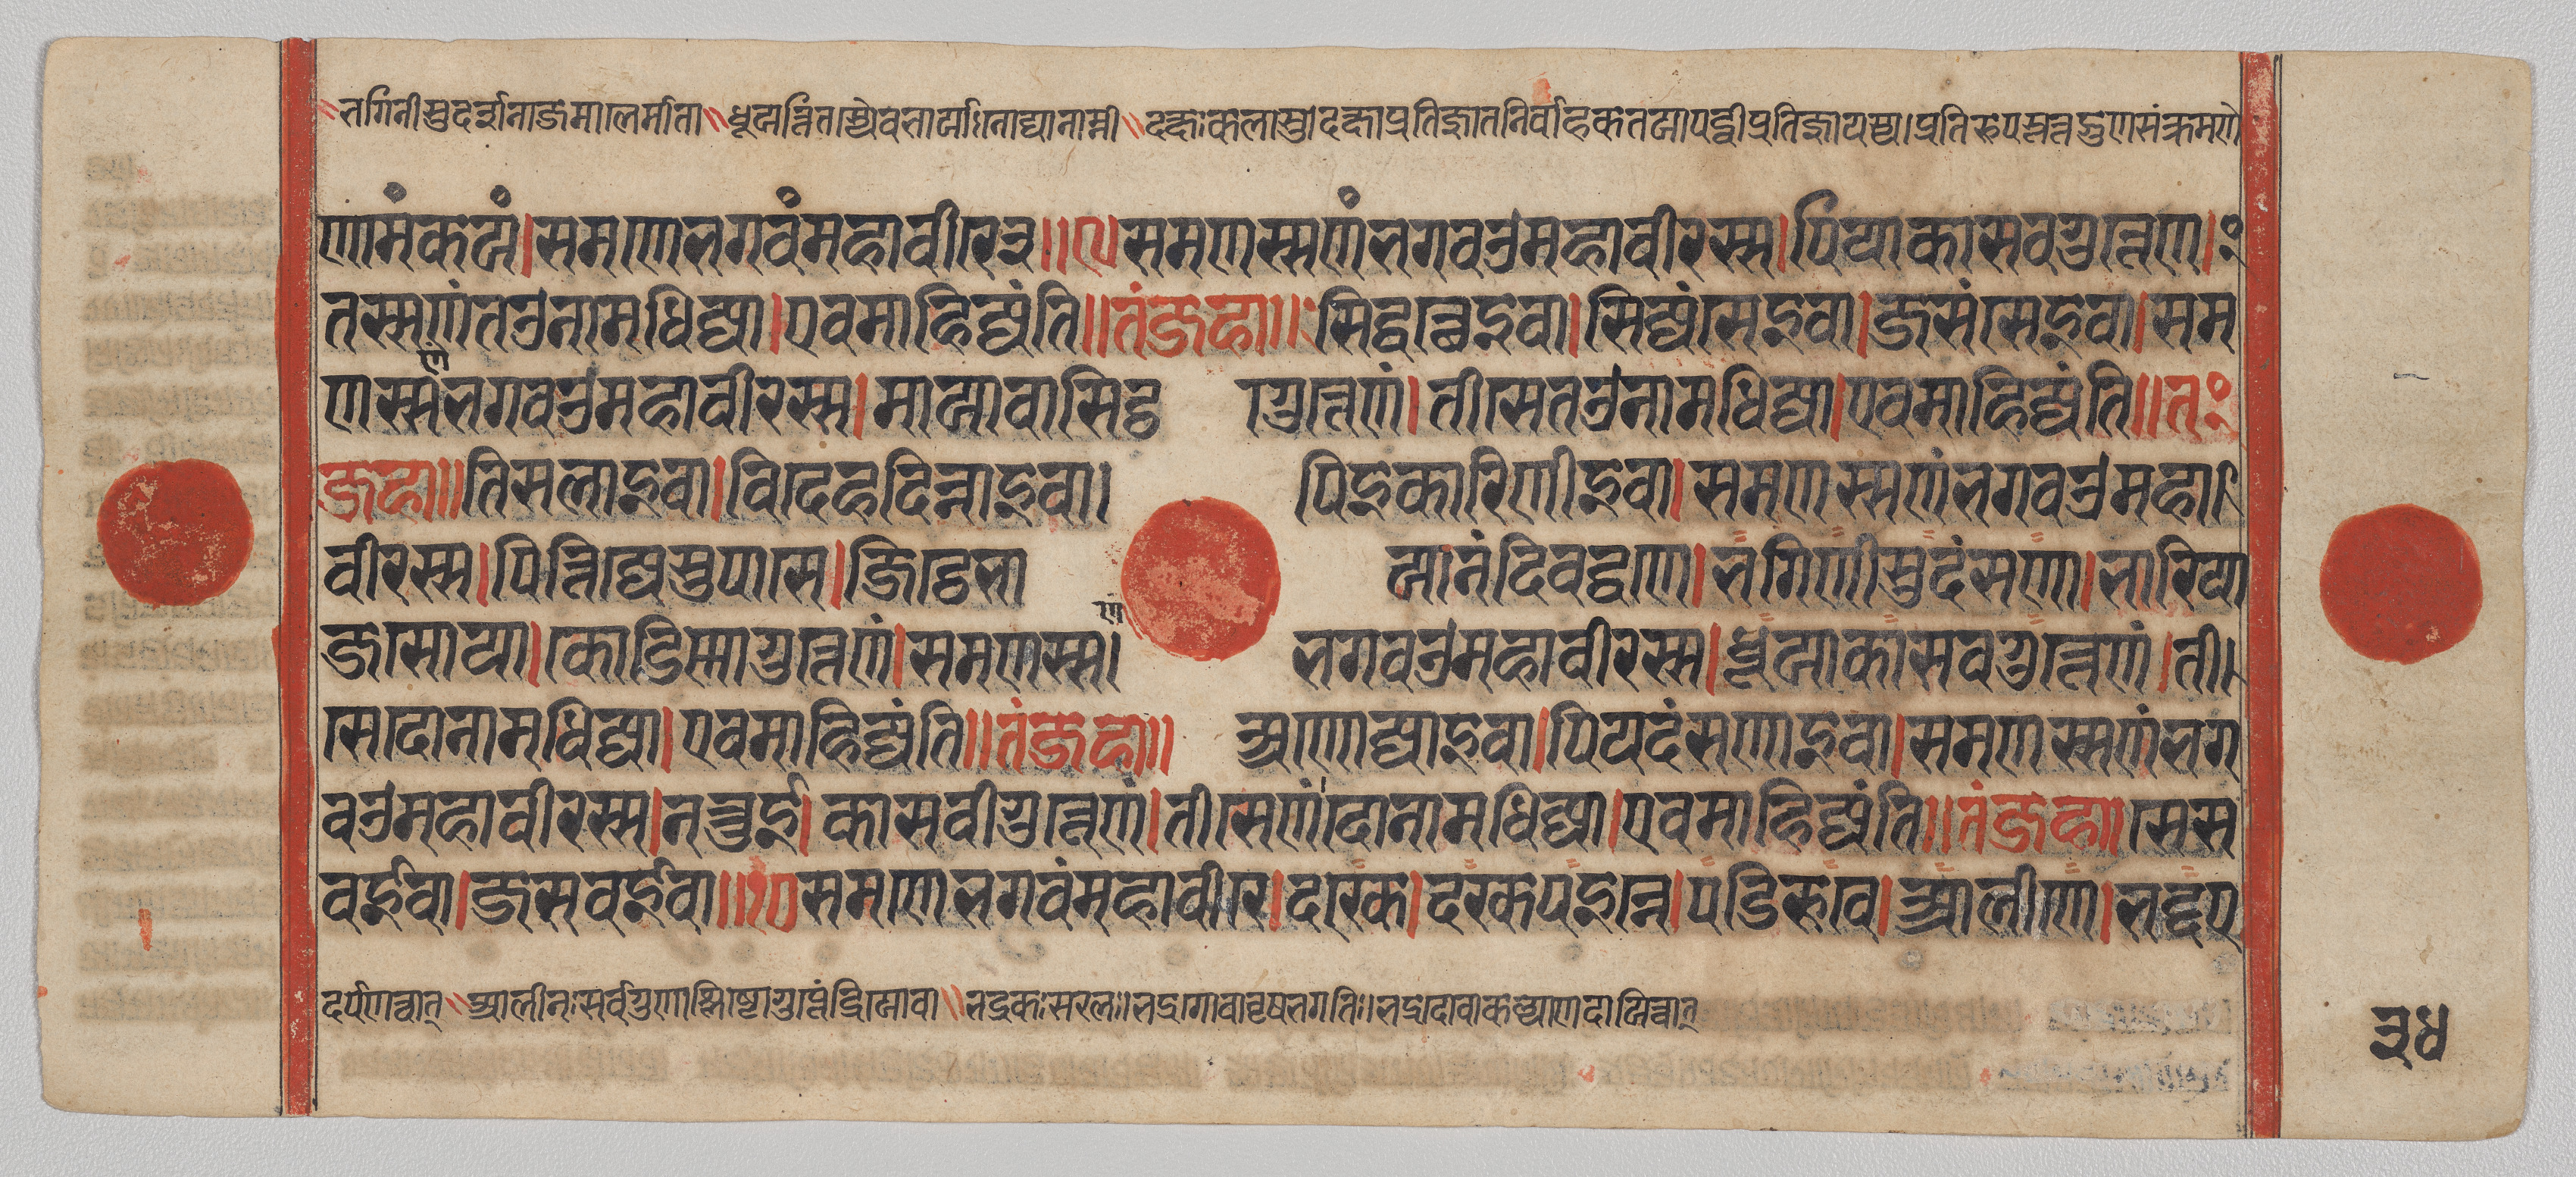 भगिनी सुदर्शना जमालेर्माता ॥ धूआ त्ति तस्यैव भार्या नाम्नी ॥ दक्षः कलासु दक्षा प्रतिज्ञातनिर्वाहकतया पट्वी प्रतिज्ञा यस्य । प्रतिरूपस्तत्तद्गुणसंक्रमणे
णामं कयं । समणे भगवं महावीरे ३ ॥ ९ समणस्स णं भगवओ महावीरस्स । पिया कासवगुत्तेणं ।
तस्स णं तओ नामधिज्जा । एवमाहिज्जंति ॥ तं जहा ॥ सिद्धत्थे इ वा । सिज्जंसे इ वा । जसंसे इ वा । सम
णस्स णं भगवओ महावीरस्स । माया वासिट्ठ गुत्तेणं । तीसे तओ नामधिज्जा । एवमाहिज्जंति ॥ तं
जहा ॥ तिसला इ वा । विदेहदिन्ना इ वा । पिइकारिणी इ वा । समणस्स णं भगवओ महा
वीरस्स । पित्तिज्जे सुपासे । जिट्ठे भा या नंदिवद्धणे । भगिणी सुदंसणा । भारिया
जसोया । कोडिन्ना गुत्तेणं । समणस्स णं भगवओ महावीरस्स । धूया कासवगुत्तेणं । ती
से दो नामधिज्जा । एवमाहिज्जंति ॥ तं जहा ॥ अणोज्जा इ वा । पियदंसणा इ वा । समणस्स णं भग
वओ महावीरस्स । नत्तुई । कासवी गुत्तेणं । तीसे णं दो नामधिज्जा । एवमाहिज्जंति ॥ तं जहा ॥ सेस
वई इ वा । जसवई इ वा ॥ १० समणे भगवं महावीरे । दक्खे । दक्खपइन्ने । पडिरूवे । आलीणे । भद्दए
दर्पणत्वात् ॥ आलीनः सर्वगुणाश्लिष्टो गुप्तेंद्रियो वा ॥ भद्रकः सरलः । भद्रगो वा वृषभगतिः । भद्रदो वा कल्याणदायित्वात्
३४